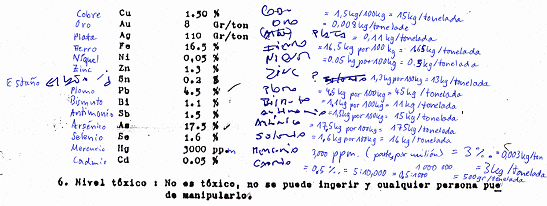 Cobre Cu 1.50 % Cobre = 1,5 kg/100kg = 15kg/tonelada
Oro Au 8 Gr/ton Oro = 0,008 kg/tonelada
Plata Ag 110 Gr/ton = 0,11 kg/tonelada
Ferro Fe 16.5 % Hierro = 16,5 kg por 100 kg = 165 kg/tonelada
Níquel Ni 0.05 % = 0.05 kg por 100 kg = 0.5 kg/tonelada
Zinc Zn 1.3 % Zinc 1,3kg por 100kg = 13kg/tonelada
Estaño Sn 0.2 % ?
Plomo Pb 4.5 % Plomo = 4,5 kg por 100kg = 45 kg/tonelada
Bismuto Bi 1.1 % = 1,1 kg por 100kg = 11 kg/tonelada
Antimonio Sb 1.5 % = 1,5 kg por 100kg = 15 kg/tonelada
Arsénico As 17.5 % = 17,5 kg por 100kg = 175kg/tonelada
Selenio Se 1.6 % = 1,6 kg por 100kg = 16 kg/tonelada
Mercurio Hg 3000 ppm Mercurio 3,000 ppm. (partes por millón) = 3 ‰ 0,003kg/ton
1 000 000 = 3kg/tonelada
Cadmio Cd 0.05 % = 0.5 ‰ = 5:10,000 = 0,5/1000 = 500gr/tonelada
6. Nivel tóxico : No es tóxico, no se puede ingerir y cualquier persona pue
de manipularlo.